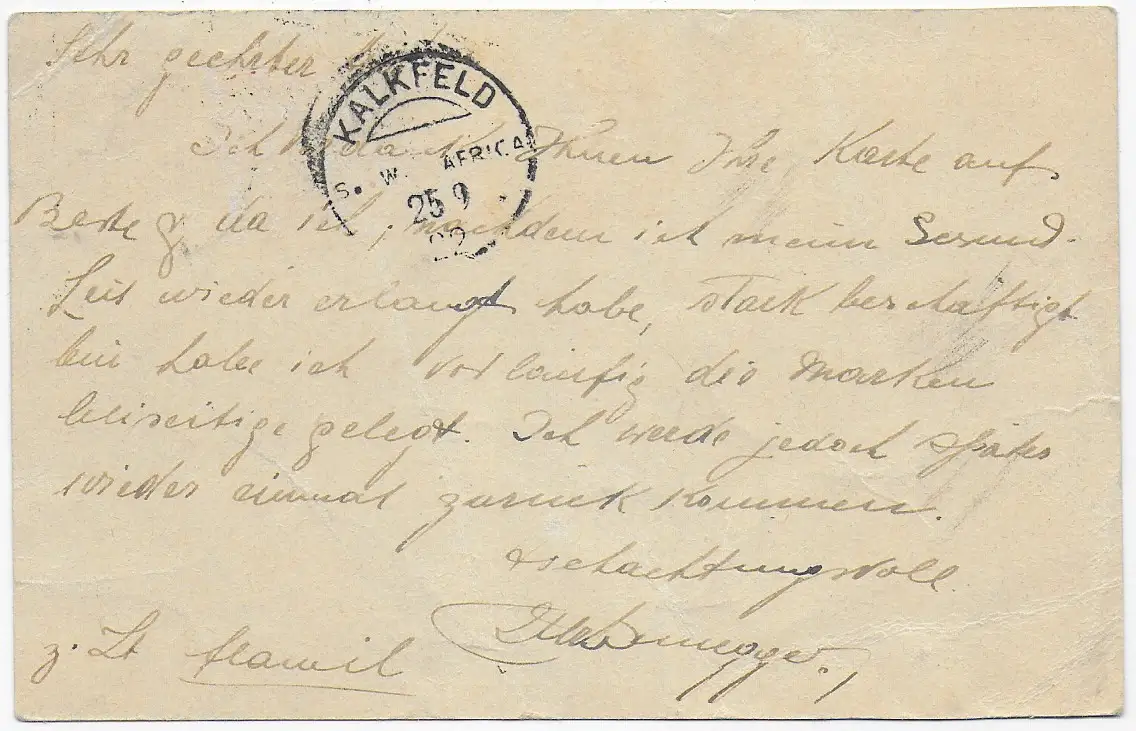 Sehr geehrter
KALKFELD
S. W. AFRICA
25 9
22
Ich Ihnen Ihre Karte auf
Beste & da ich, nachdem ich meine Gesund-
heit wieder erlangt habe, stark beschäftigt
bin habe ich vorläufig die Marken
beiseitige gelegt. Ich werde jedoch später
wieder einmal zurück kommen.
Hochachtungsvoll
z. Zt Flawil